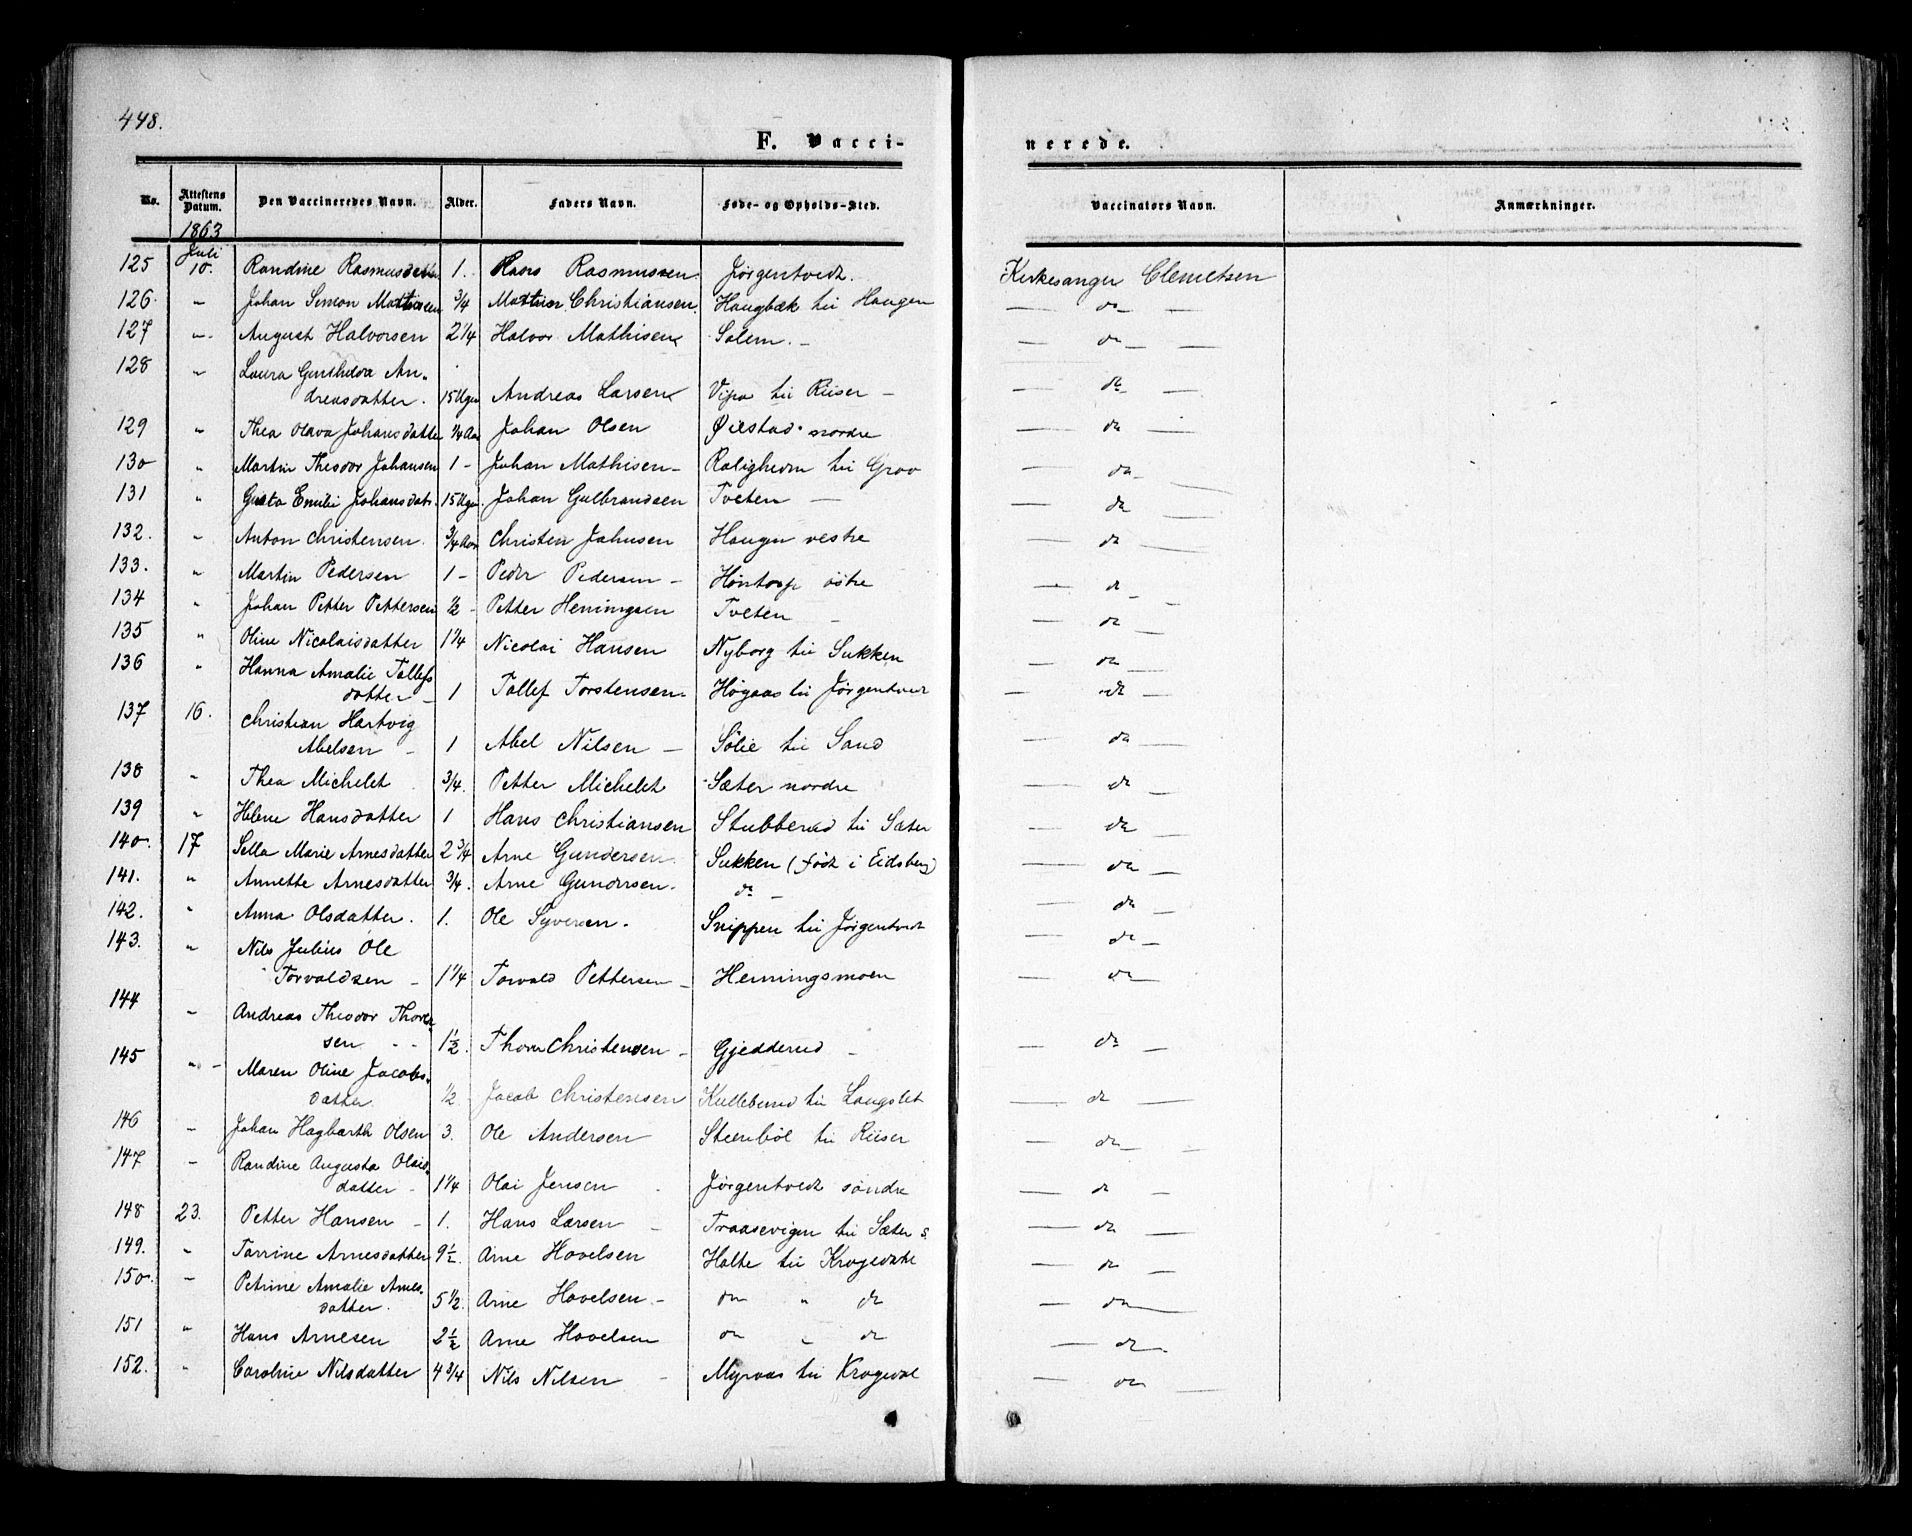 448.
F. Vacci- nerede.
No. Attestens Datum. Den Vaccineredes Navn. Alder. Faders Navn. Føde- og Opholds-Sted. Vaccinatørs Navn. Anmærkninger.
1863
Juli
125 10. Randine Rasmusdatter 1. Hans Rasmussen Jørgentvedt. Kirkesanger Clemetsen
126. " Johan Simon Mathisen 3/4 Mathias Christiansen. Haugbæk til Haugen — do —
127 " August Halvorsen 2 1/4 Halvor Mathisen Solem. — — do — —
128 " Laura Gunhilda An-
dreasdatter. 15 Uger Andreas Larsen Vipa til Riiser — — do —
129 " Thea Olava Johansdatter 1/4 Aar Johan Olsen Ørstad nordre — do —
130 " Martin Theodor Johansen 1 — Johan Mathisen — Roligheden til Grav — do —
131 " Gusta Emilie Johansdatr. 15 Uger. Johan Gulbrandsen Tveten — — do —
132. " Anton Christensen. 3/4 Aar Christen Johnsen Haugen vestre — do —
133. " Martin Pedersen 1 — Peder Pedersen — Hontorp østre — do —
134 " Johan Petter Pettersen 1/2 — Petter Henningsen Tveten — — do —
135 " Oline Nicolaisdatter 1 1/4 Nicolai Hansen Nyborg til Sukken — do —
136 " Hanna Amalie Tollefs
datter — 1 Tollef Torstensen — Høgaas til Jørgentvedt — do —
137 16. Christian Hartvig
Abelsen — 1 Abel Nilsen — Sølie til Sand — do —
138 " Thea Michelet 3/4. Petter Michelet Sæter nordre — do —
139 " Helene Hansdatter 1 Hans Christiansen Stubberud til Sæter — do —
140. 17 Sella Marie Arnesdatter 2 3/4 Arne Gundersen. Sukken (født i Eidsberg) — do —
141. " Annette Arnesdatter 3/4. Arne Gundersen. do — — do —
142. " Anna Olsdatter. 1. Ole Syversen. Snippen til Jørgentvedt — do —
143. " Nils Julius Ole
Torvaldsen — 1 1/4 Torvald Pettersen — Henningsmoen — do —
144 " Andreas Theodor Thorer-
sen 1 1/2 Thorer Christensen — Gjedderud — — do —
145 " Maren Oline Jacobs-
datter. 1/2. Jacob Christensen Kullebund til Langslet — do —
146 " Johan Hagbarth Olsen 3. Ole Andersen Steenbøl til Riiser — do —
147 " Randine Augusta Olais-
datter — 1 1/4 Olai Jensen. Jørgentvedt søndre — do —
148 23. Petter Hansen — 1. Hans Larsen — Traasevigen til Sæter s. — do —
149. " Torrine Arnesdatter 9 1/2. Arne Hovelsen Holte til Krogedale — do —
150. " Petrine Amalie Arnes-
datter. 5 1/2. Arne Hovelsen — do " do — do —
151 " Hans Arnesen 2 1/2 Arne Hovelsen do " do — do —
152. " Caroline Nilsdatter 4 3/4 Nils Nilsen — Myraas til Krogedal — do —